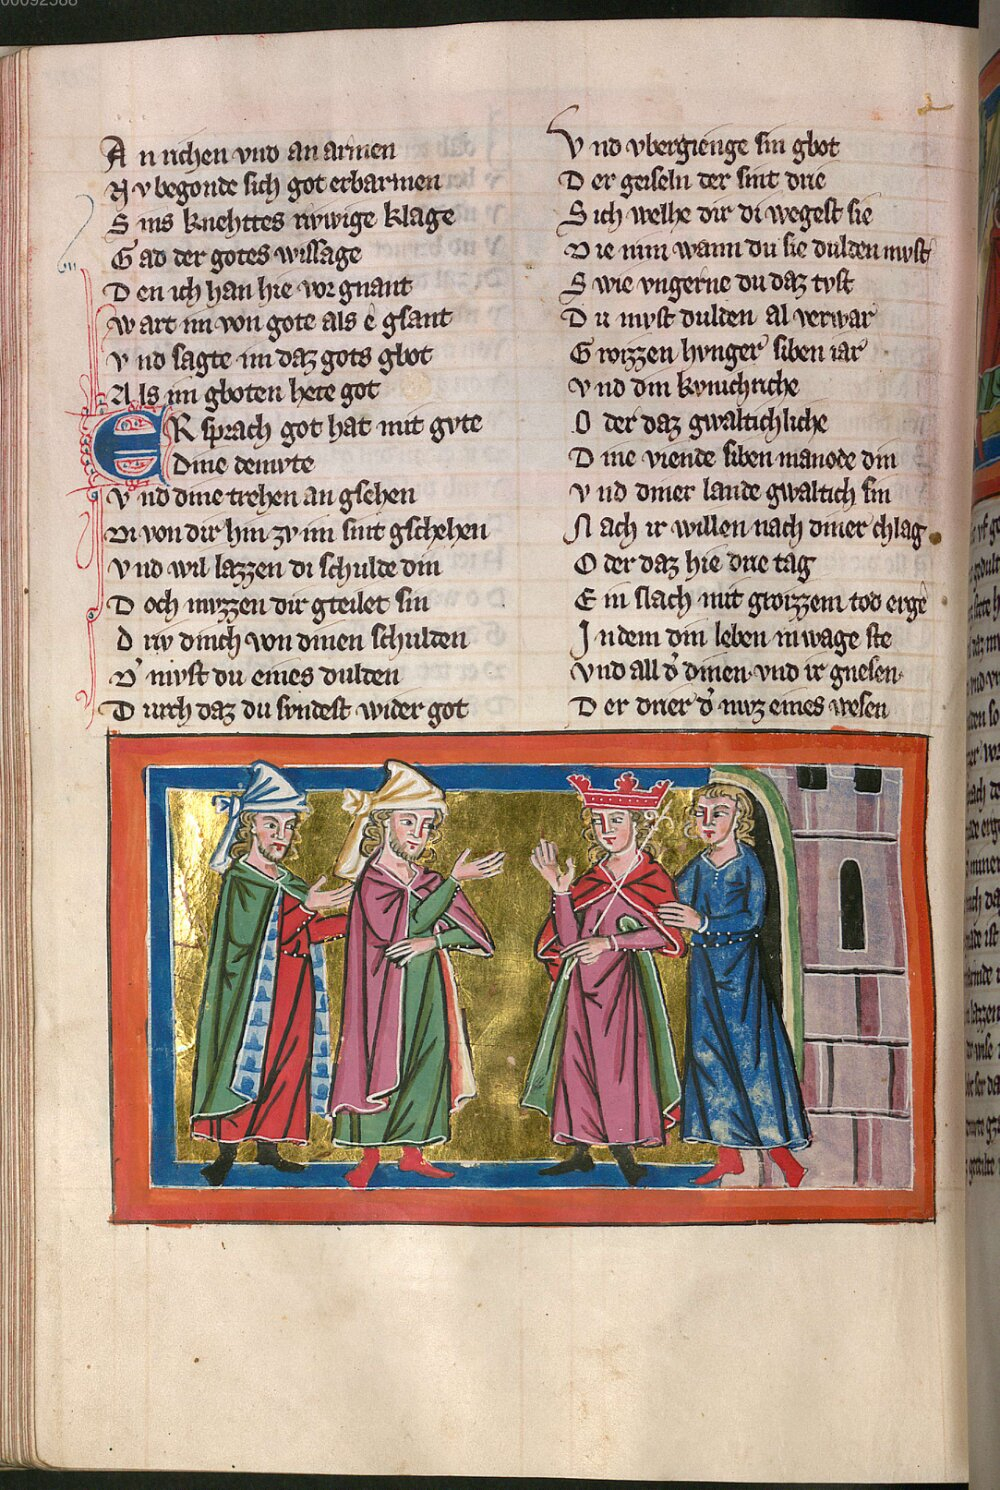 00092588
A n richen vnd an armen
N v begonde sich got erbarmen
S ins knehttes riwige klage
G ad der gotes wissage
D en ich han hie vor gnant
w art im von gote als e gsant
v nd sagte im daz gots gbot
A ls im gboten hete got
ER sprach got hat mit gvte
dine demvte
v nd dine trehen an gsehen
Di von dir hin zv im sint gschehen
v nd wil lazzen di schulde din
D och mvzzen dir gteilet sin
d riv dinch von dinen schulden
D' mvst du eines dulden
D urch daz du svndest wider got
V nd vbergienge sin gbot
D er geiseln der sint drie
S ich welhe dir di wegest sie
D ie nim wann du sie dulden mvst
S wie vngerne du daz tvst
D u mvst dulden al verwar
G roizzen hvnger siben iar
v nd din kvnichriche
O der daz gwaltichliche
D ine viende siben manode din
v nd diner lande gwaltich sin
N ach ir willen nach diner chlag
O der daz hie drie tag
E in slach mit groizzem tod erge
I ndem din leben in wage ste
vnd all d' dinen vnd ir gnesen
D er drier d' mvz eines wesen